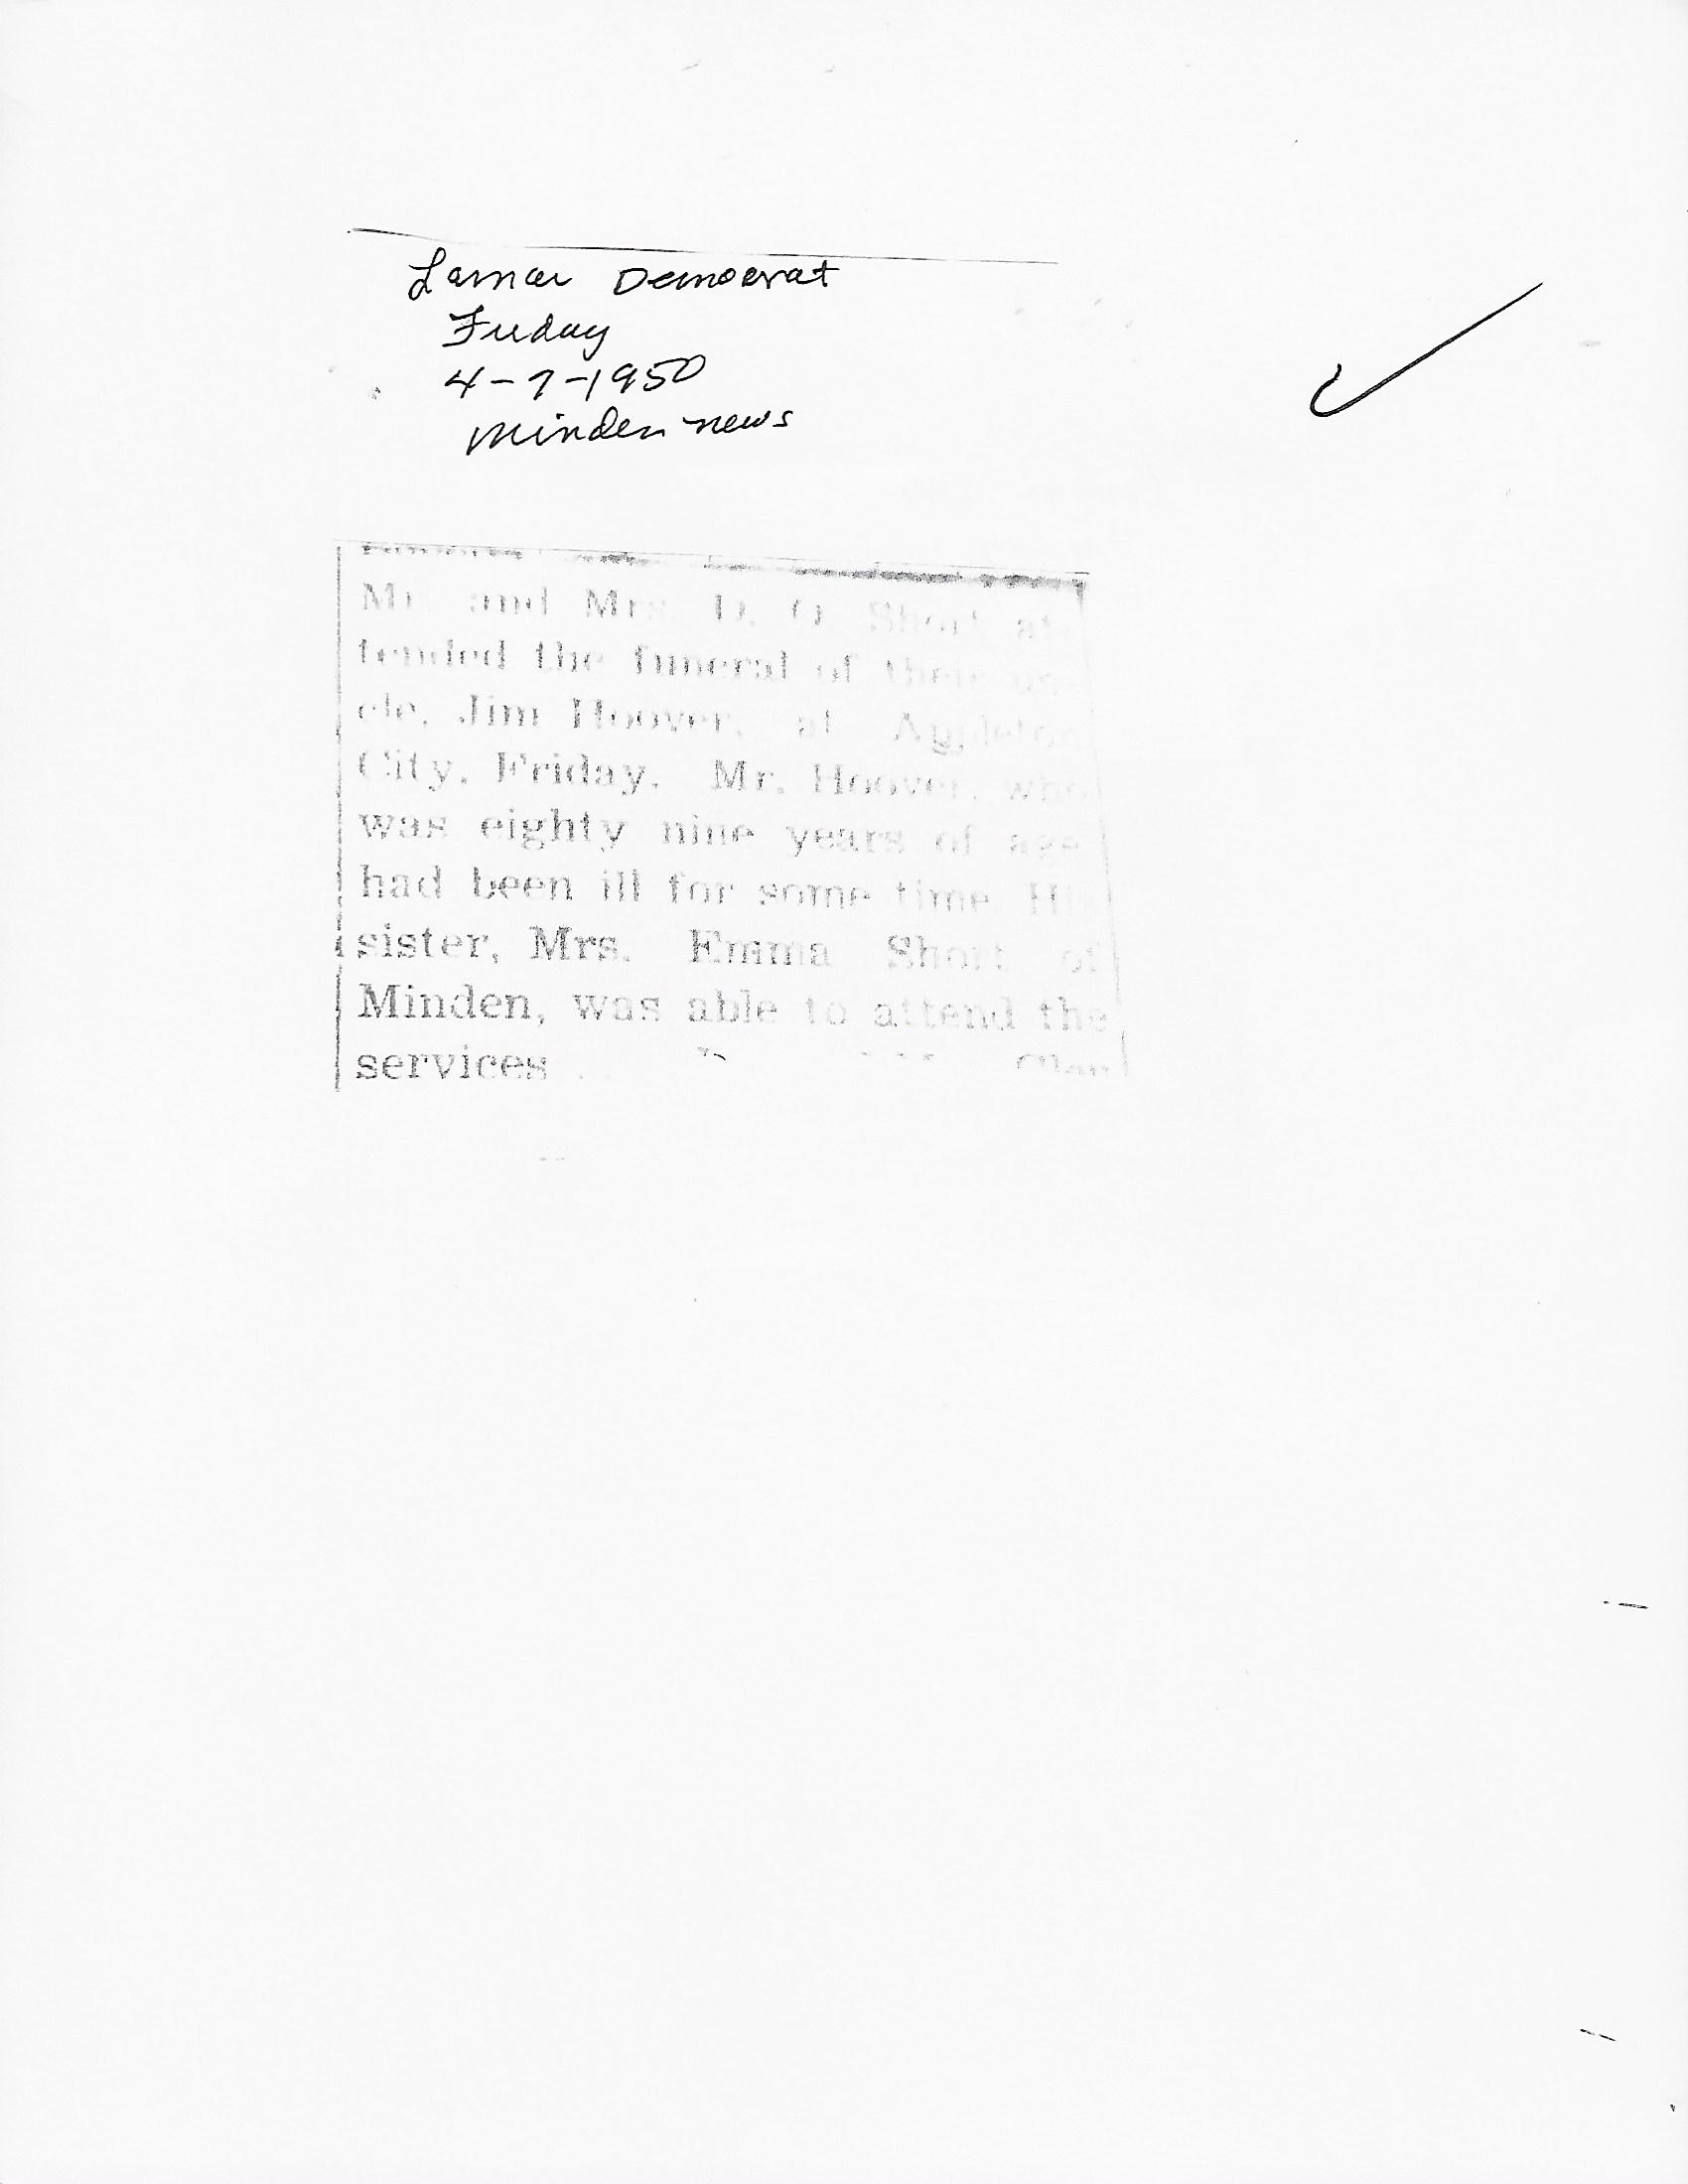 Lamar Democrat
Friday
4-7-1950
Minden news
Mr. and Mrs. D. O. Short at-
tended the funeral of their un-
cle, Jim Hoover, at Appleton
City, Friday. Mr. Hoover, who
was eighty nine years of age
had been ill for some time. His
sister, Mrs. Emma Short of
Minden, was able to attend the
services